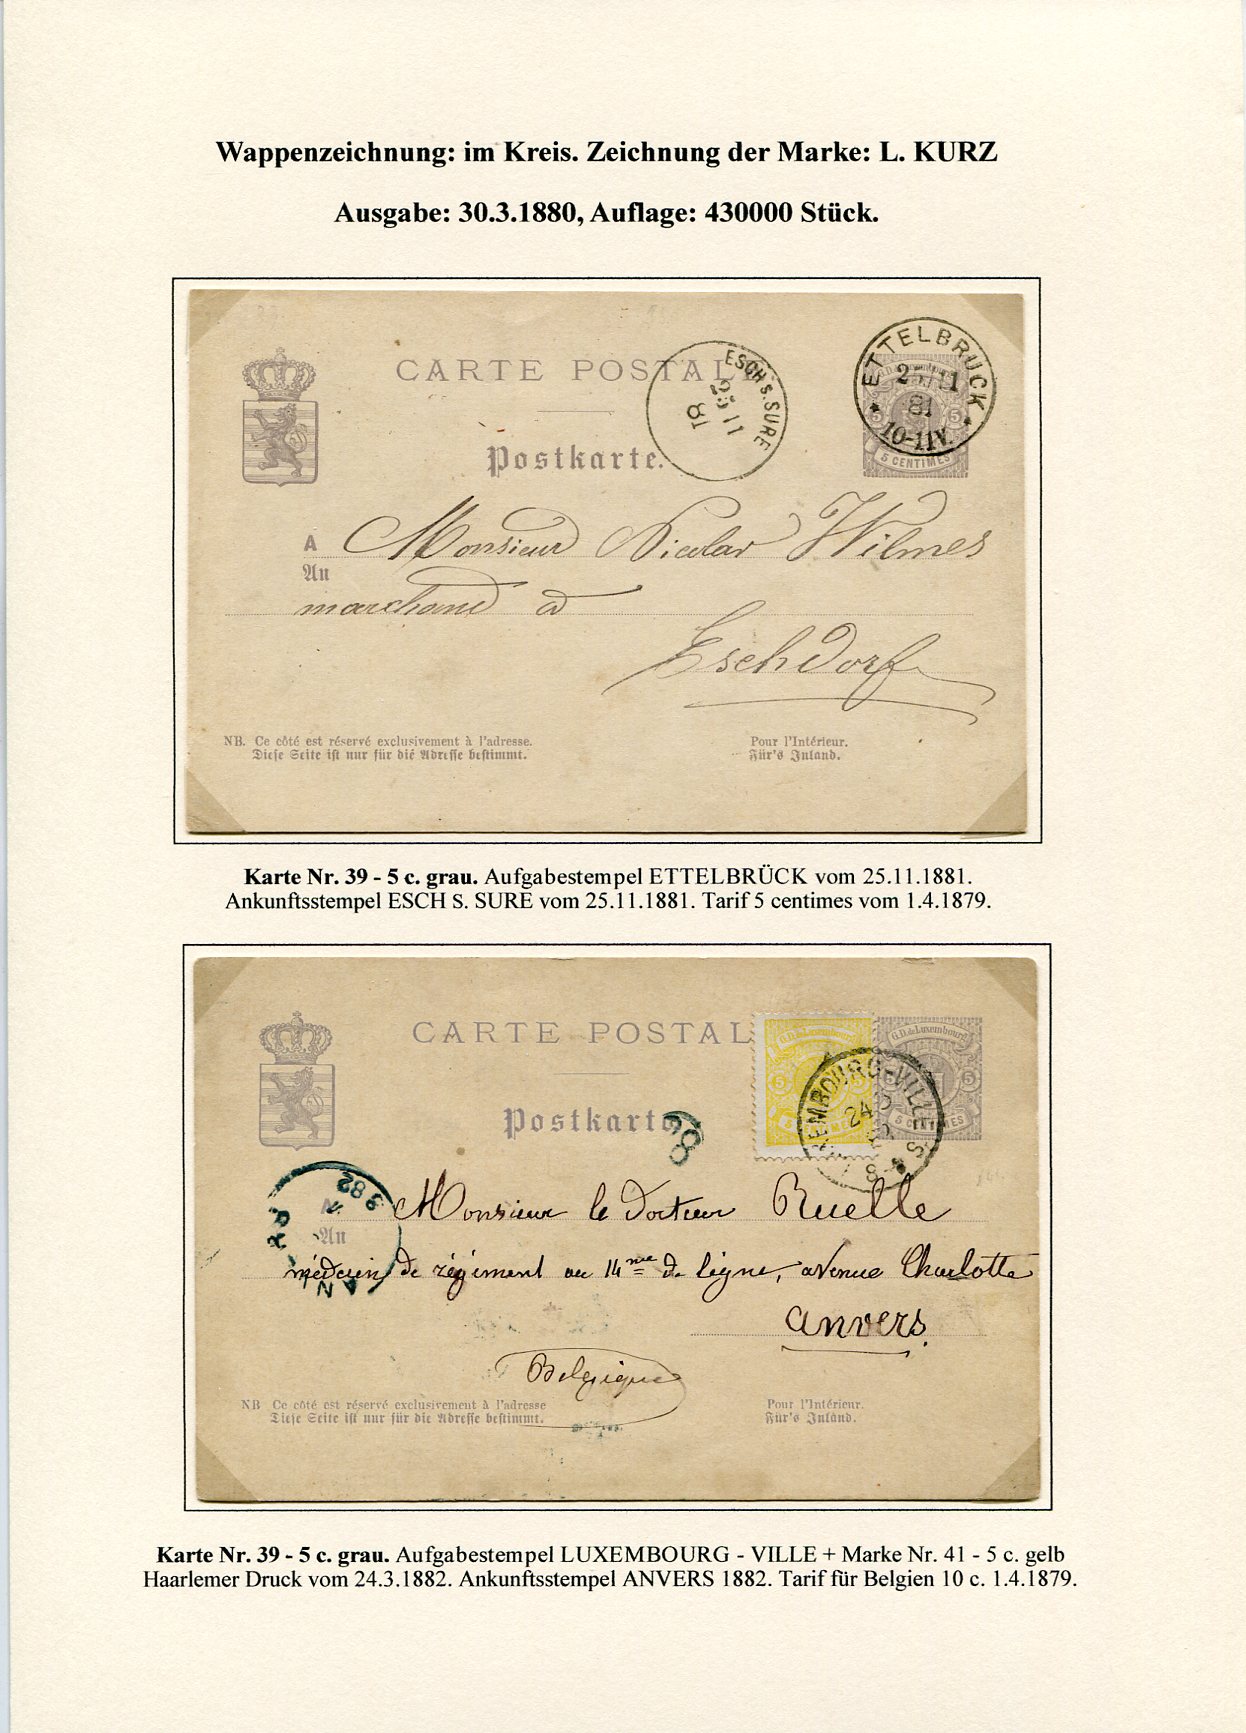 Wappenzeichnung: im Kreis. Zeichnung der Marke: L. KURZ
Ausgabe: 30.3.1880, Auflage: 430000 Stück.
CARTE POSTAL
ESCH s. SURE
25 11
81
ETTELBRUCK
25/11
81
10-11V.
5 5
5 CENTIMES
Postkarte.
A Monsieur Nicolas Wilmes
An
marchand à
Eschdorf
NB. Ce côté est réservé exclusivement à l'adresse.
Diese Seite ist nur für die Adresse bestimmt.
Pour l'Intérieur.
Für's Inland.
Karte Nr. 39 - 5 c. grau. Aufgabestempel ETTELBRÜCK vom 25.11.1881.
Ankunftsstempel ESCH S. SURE vom 25.11.1881. Tarif 5 centimes vom 1.4.1879.
CARTE POSTAL
G.D. de Luxembourg
G.D. de Luxembourg
5 5
5 CENTIMES
EMBOURG-VILLE
24
Postkarte
Monsieur le Docteur Ruelle
An
médecin de régiment au 14me de ligne, avenue Charlotte
Anvers.
Belgique
NB Ce côté est réservé exclusivement à l'adresse
Diese Seite ist nur für die Adresse bestimmt.
Pour l'Intérieur.
Für's Inland.
Karte Nr. 39 - 5 c. grau. Aufgabestempel LUXEMBOURG - VILLE + Marke Nr. 41 - 5 c. gelb
Haarlemer Druck vom 24.3.1882. Ankunftsstempel ANVERS 1882. Tarif für Belgien 10 c. 1.4.1879.